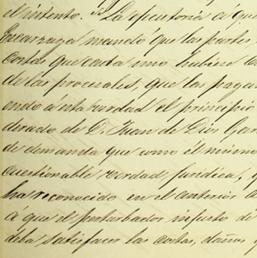 el intento. La ejecutoria á que
Encarzaga mandó que las partes
costas que cada uno hubiere
de las procesales, que las pagar
endo a esta verdad el principio
derado de D. Juan de Dios Gar
de demanda que como el mismo
cuestionable verdad jurídica, y
ha reconocido en el anterior
á que el perturbador injusto d
deba satisfacer las costas, daños y